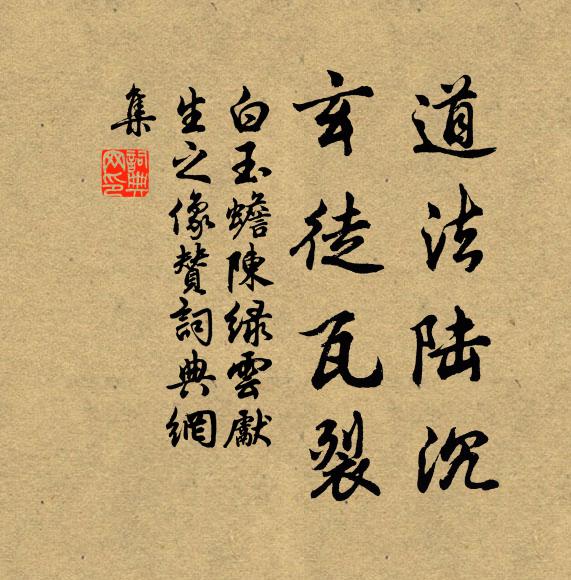 道法陆沉
玄徒瓦裂
白玉蟾陳绿雲獻
生之像贊詞典網
集
詞典
网印